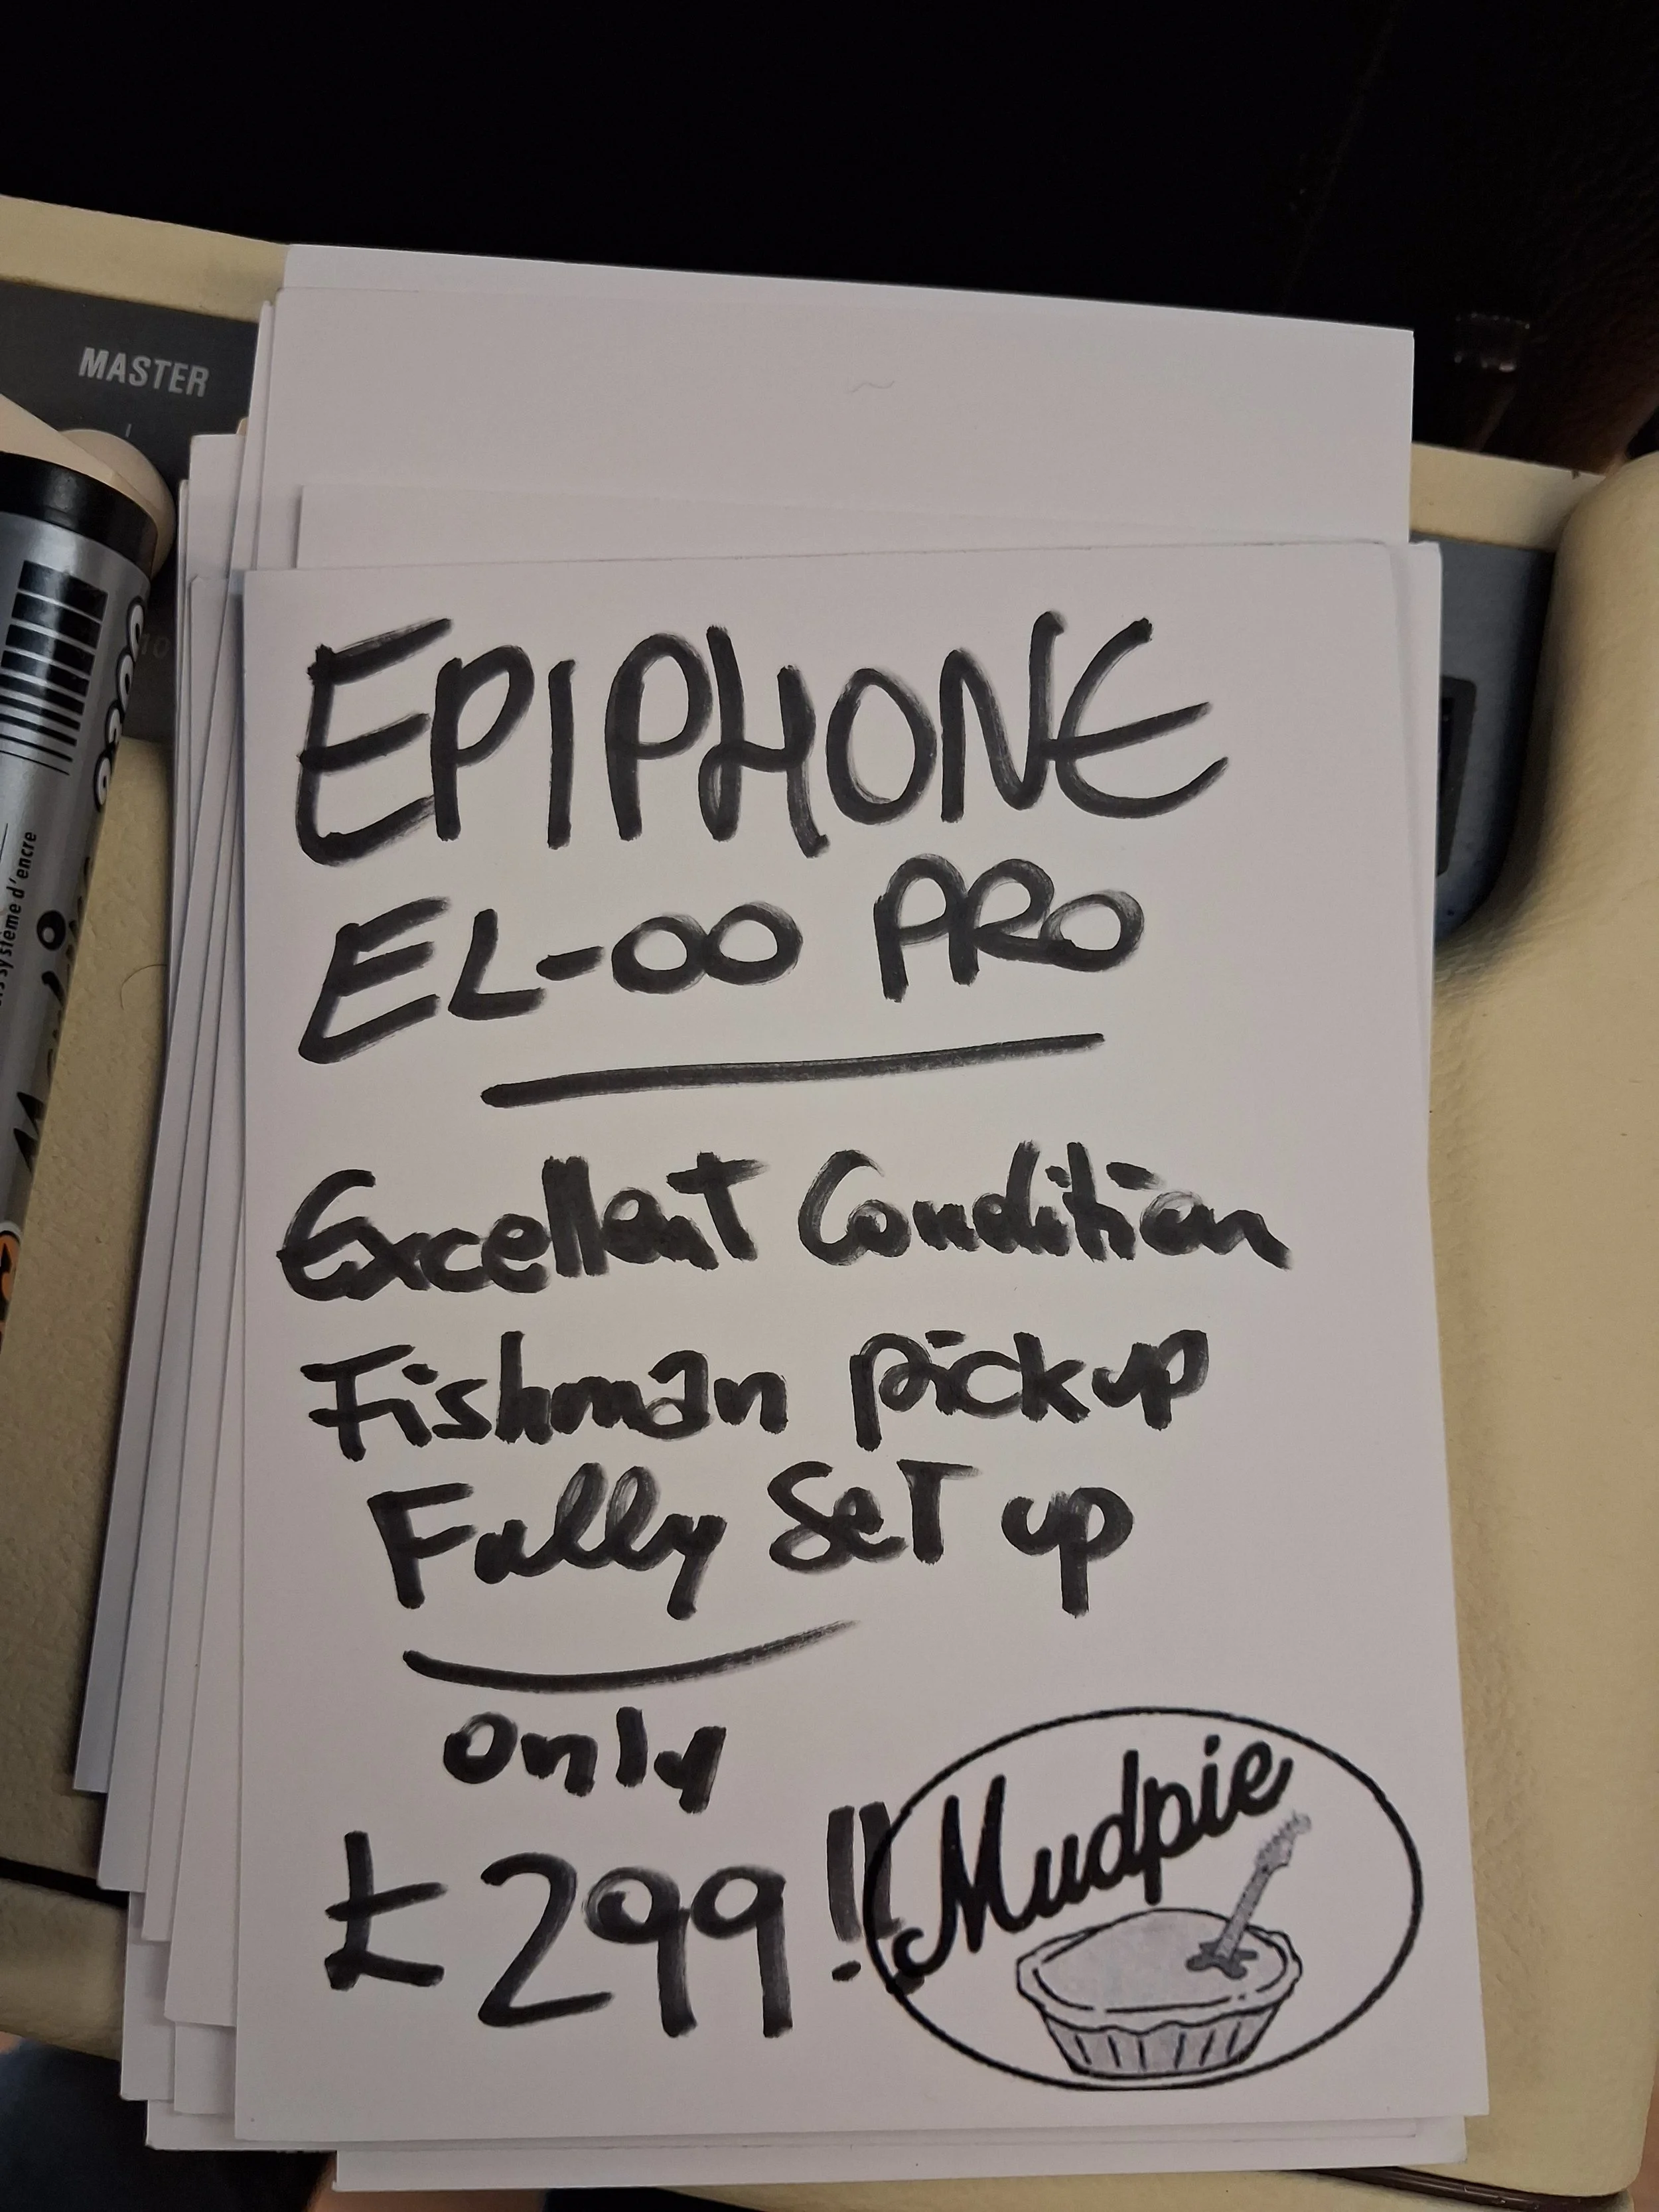 MASTER
10
système d'encre
EPIPHONE
EL-00 PRO
Excellent Condition
Fishman pickup
Fully Set up
only
£299!!
Mudpie